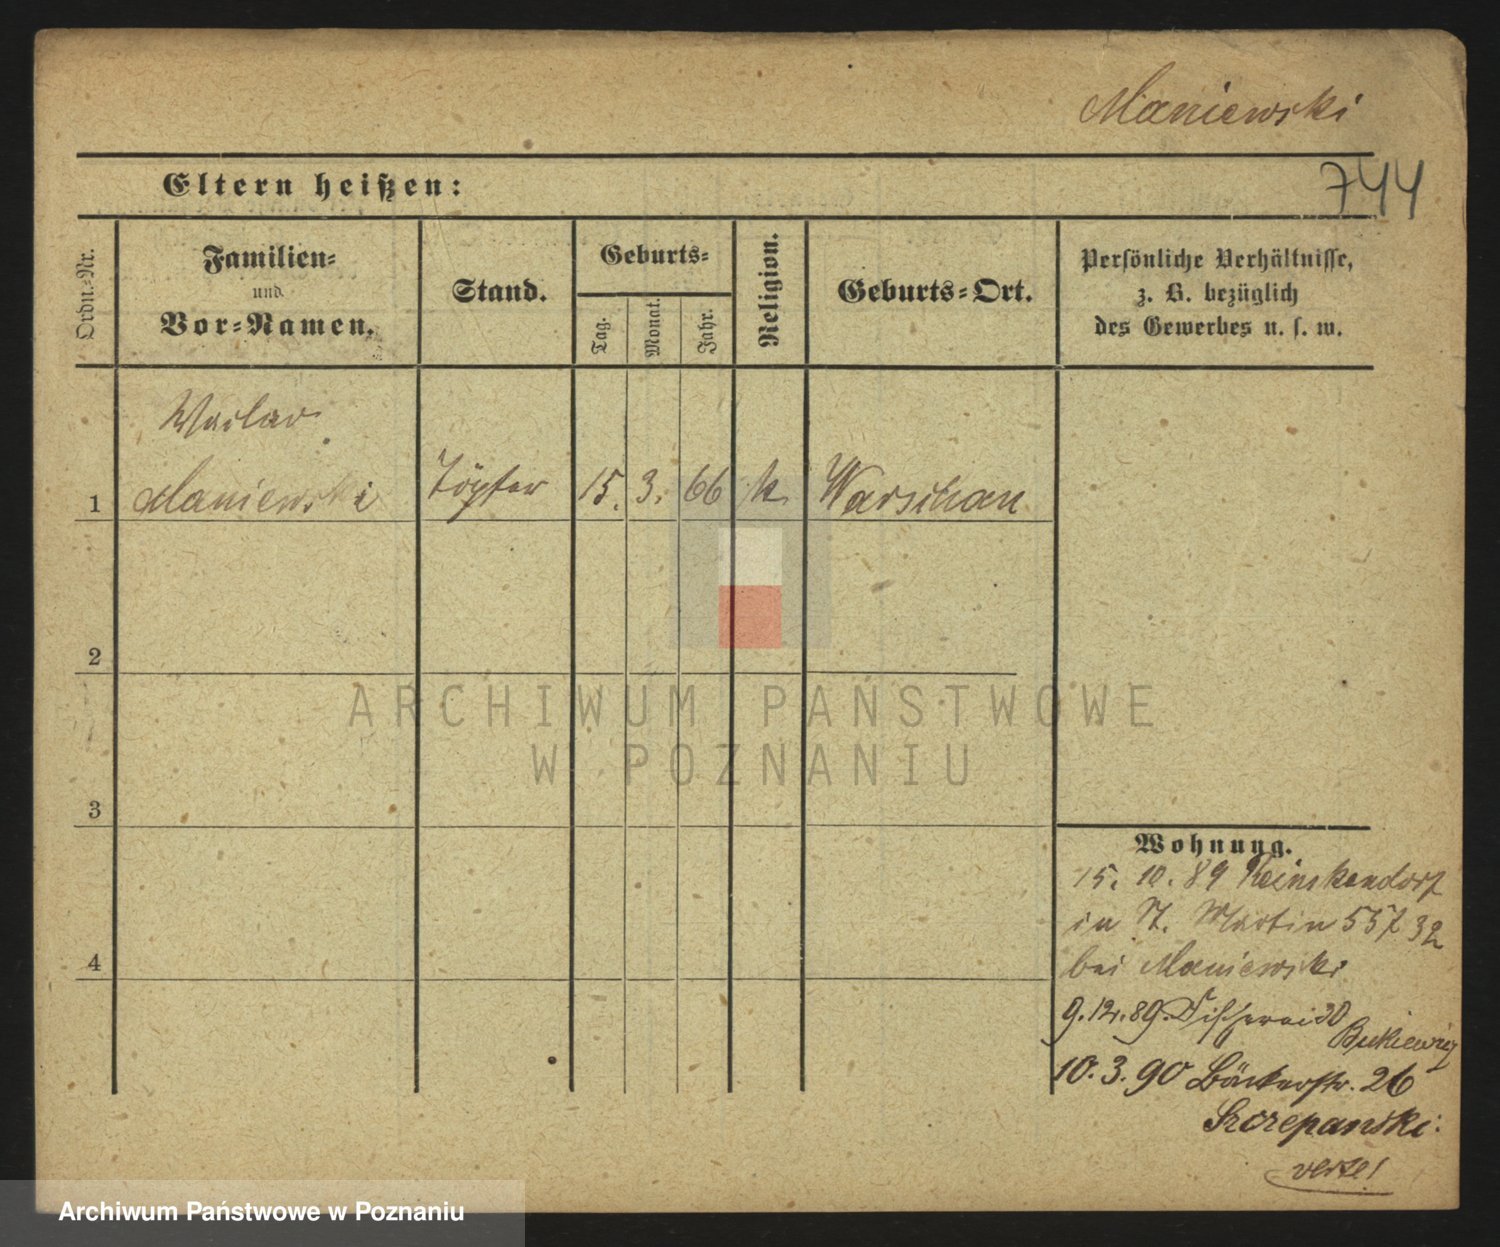 Maniewski
744
Eltern heißen:
Ordn.-Nr.
Familien-
und
Vor-Namen.
Stand.
Geburts-
Tag.
Monat.
Jahr.
Religion.
Geburts-Ort.
Persönliche Verhältnisse,
z. B. bezüglich
des Gewerbes u. s. w.
Waclav
1 Maniewski Töpfer 15. 3. 66 k. Warschau
2
3
4
ARCHIWUM PAŃSTWOWE
W POZNANIU
Wohnung.
15. 10. 89 Reinikendorf
in St. Martin 55/
bei Maniewski
9. 12. 89. Fischerei 30
10. 3. 90 Bäckerstr. 26
Szczepanski
verte!
Archiwum Państwowe w Poznaniu